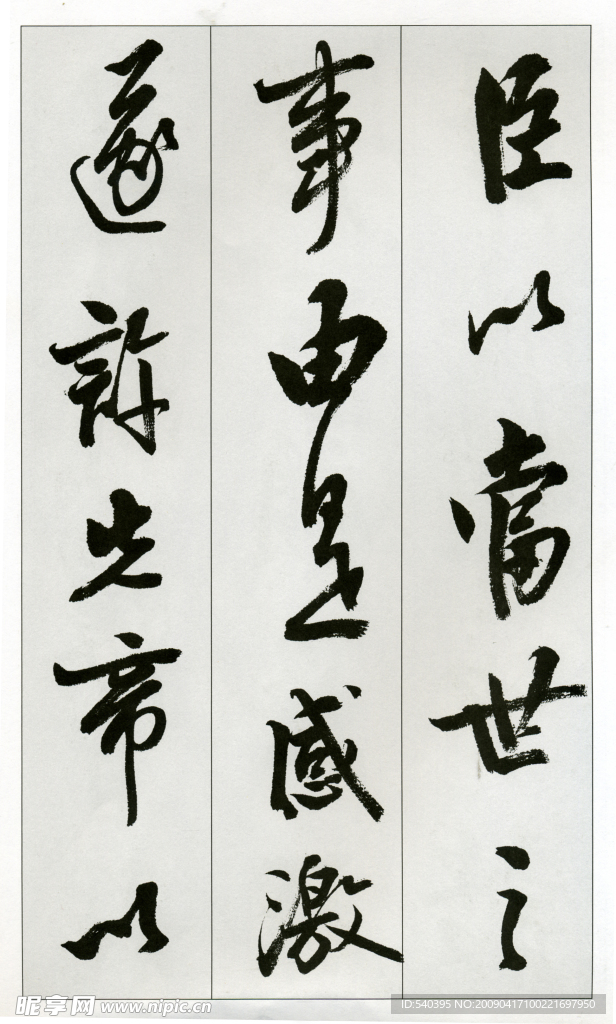 臣以當世之
事由是感激
遂許先帝以
昵享网 www.nipic.cn
ID:540395 NO:20090417100221697950